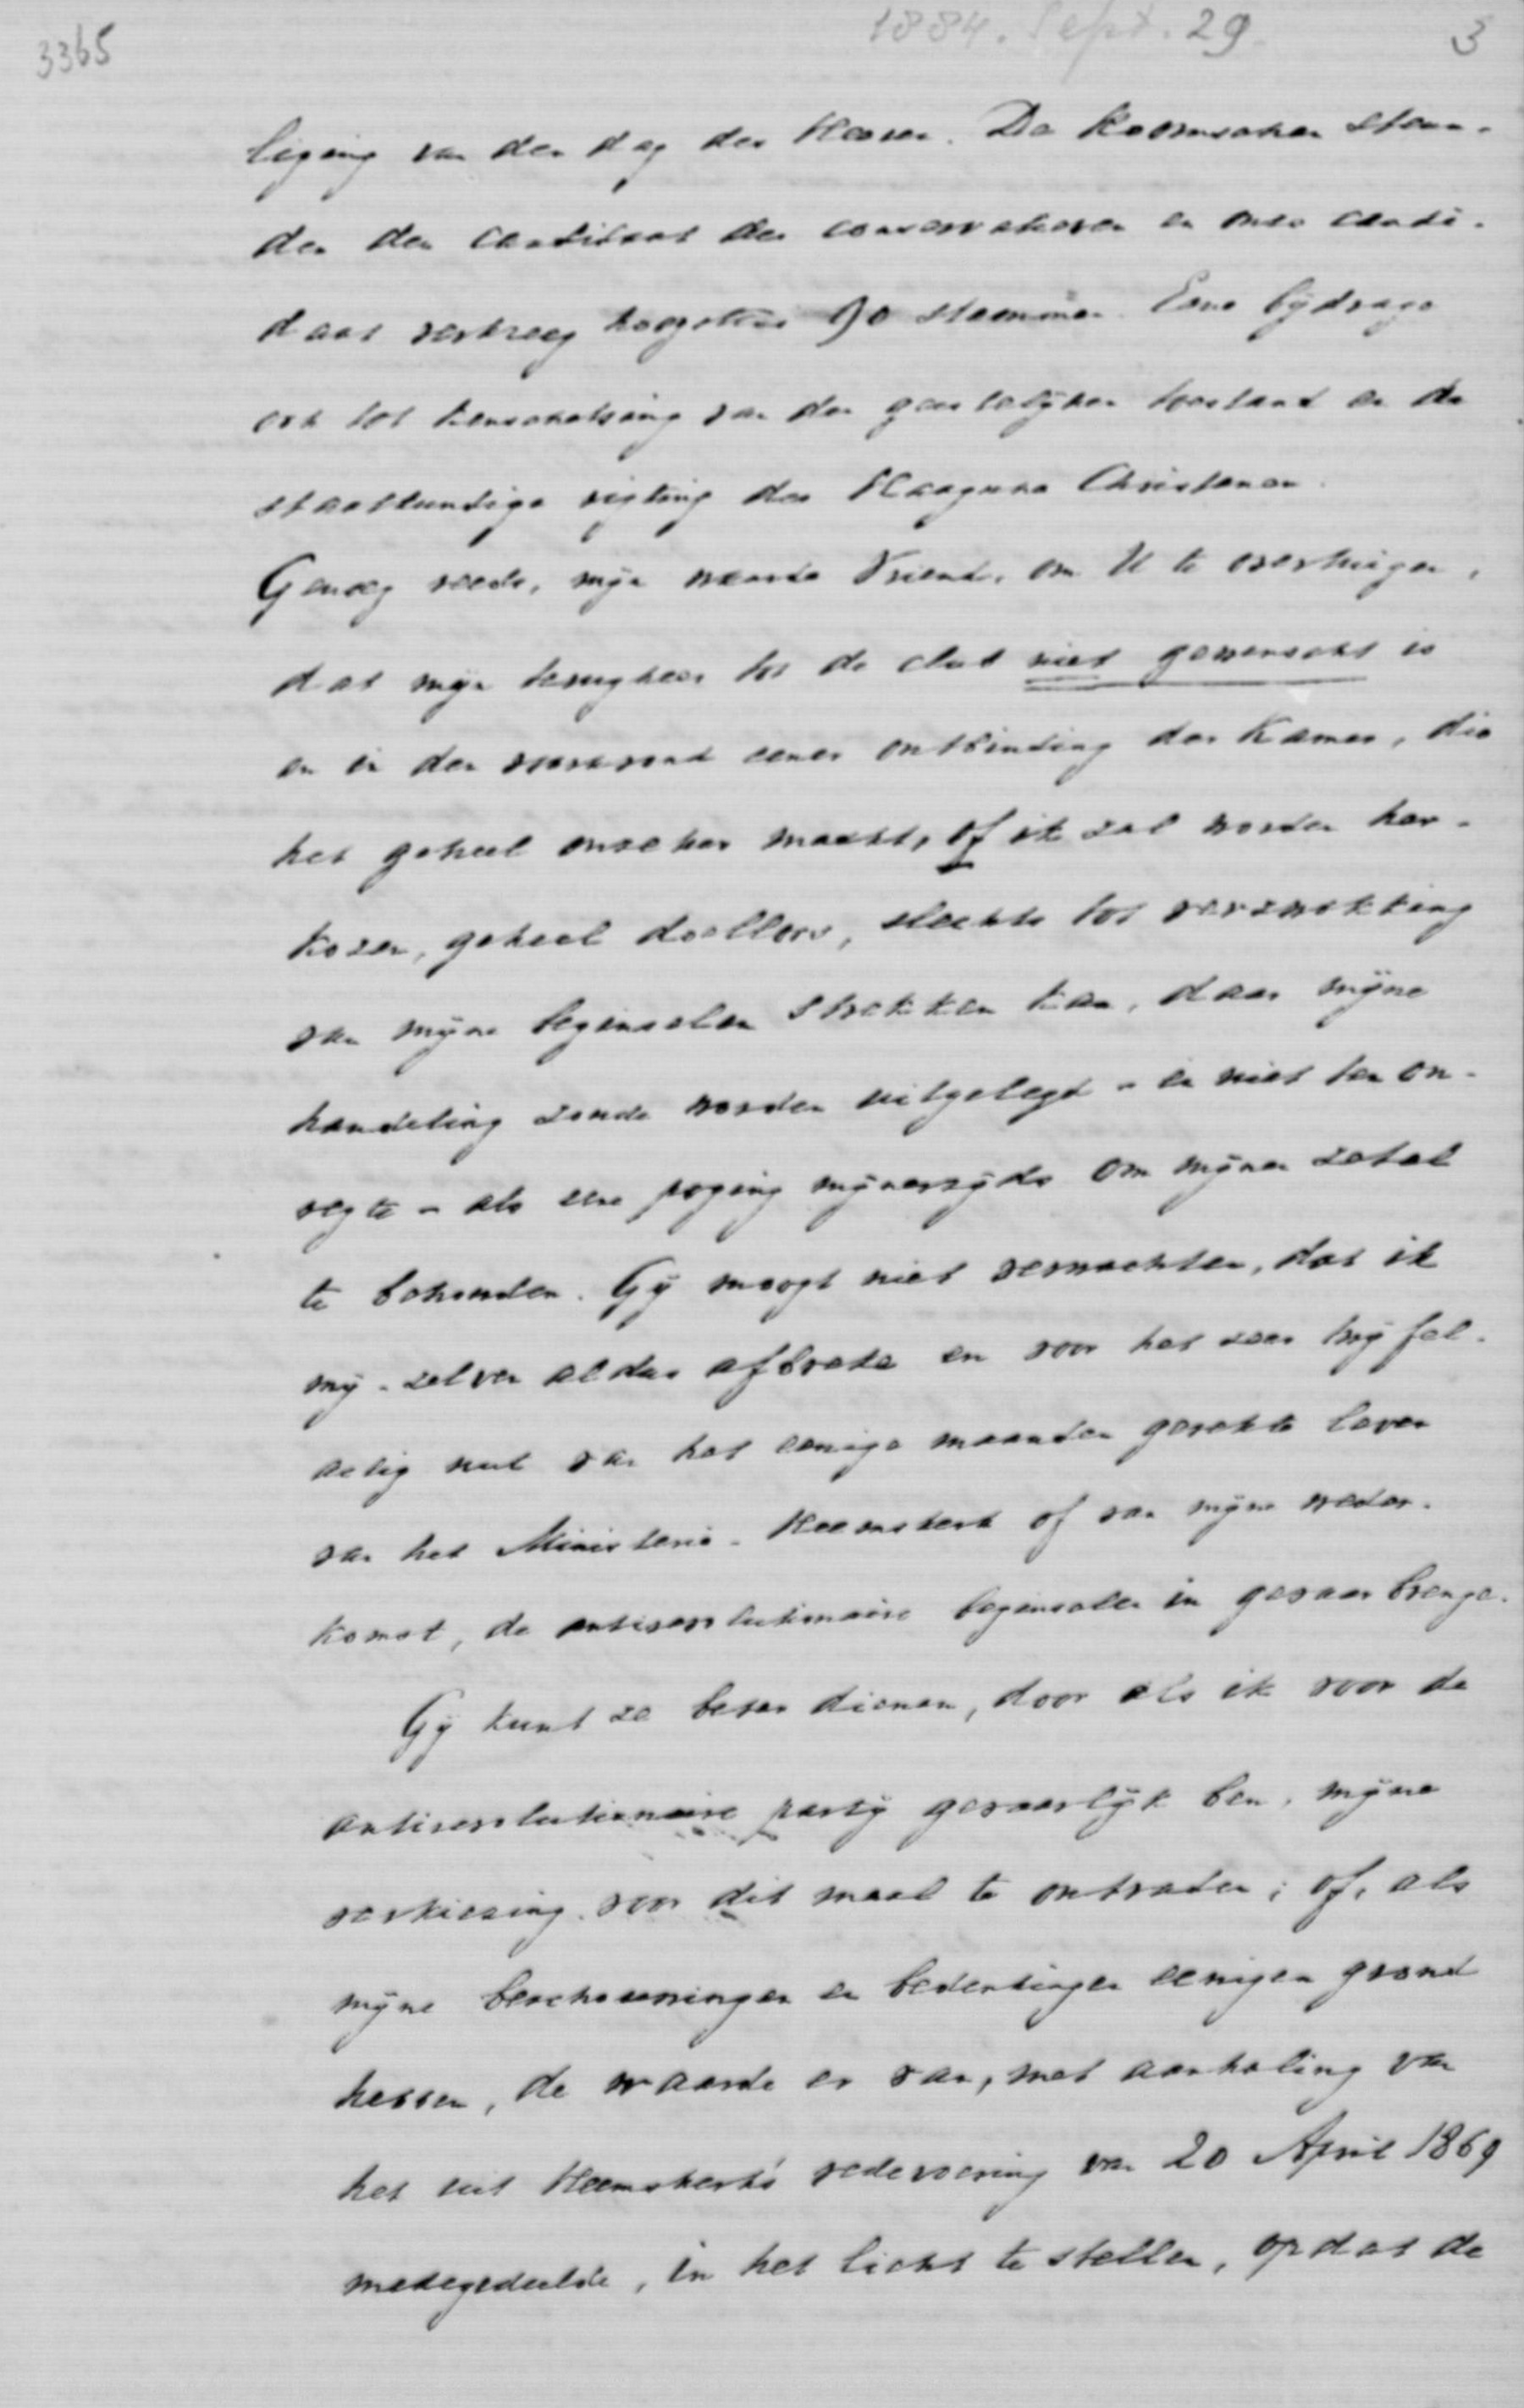 3365
1884. Sept. 29.
3
liging van den dag des Heeren. De Roomschen steun-
den den candidaat der conservatieven en onze candi-
daat verkreeg hoogstens 90 stemmen. Eene bydrage
ook tot kenschetsing van den geestelyken toestand en de
staatkundige rigting der Haagsche Christenen.
Genoeg reeds, myn waarde Vriend, om U te overtuigen,
dat myn terugkeer tot de club niet gewenscht is
en in den vooravond eener ontbinding der Kamer, die
het geheel onzeker maakt, of ik zal worden her-
kozen, geheel doelloos, slechts tot verzwakking
van myne beginselen strekken kan, daar myne
handeling zoude worden uitgelegd - en niet ten on-
regte - als eene poging mynerzyds om mynen zetel
te behouden. Gy moogt niet verwachten, dat ik
my-zelven aldus afbreke en voor het zeer twyfel-
achtig nut van het eenige maanden gerekte leven
van het Ministerie-Heemskerk of van myne weder-
komst, de antirevolutionaire beginselen in gevaar brenge.
Gy kunt ze beter dienen, door als ik voor de
antirevolutionaire party gevaarlyk ben, myne
verkiezing voor dit maal te ontraden; of, als
myne beschouwingen en bedenkingen eenigen grond
hebben, de waarde er van, met aanhaling van
het uit Heemskerk's redevoering van 20 April 1869
medegedeelde, in het licht te stellen, opdat de